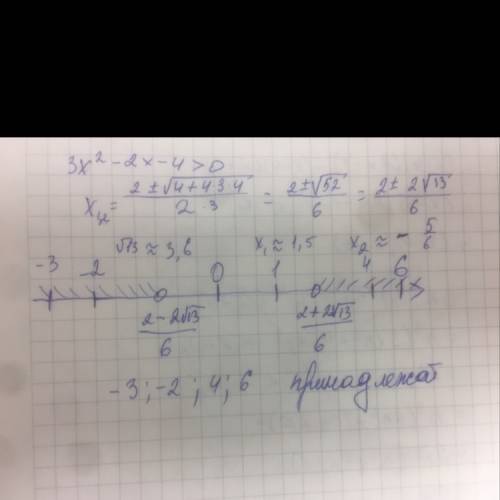 3x² - 2x - 4 > 0
x₁,₂ = (2 ± √(4+4·3·4))/(2·3) = (2±√52)/6 = (2± 2√13)/6
√13 ≈ 3,6 x₁ ≈ 1,5 x₂ ≈ - 5/6
-3 -2 0 1 4 6 x
(2 - 2√13)/6 (2+2√13)/6
-3 ; -2 ; 4 ; 6 принадлежат